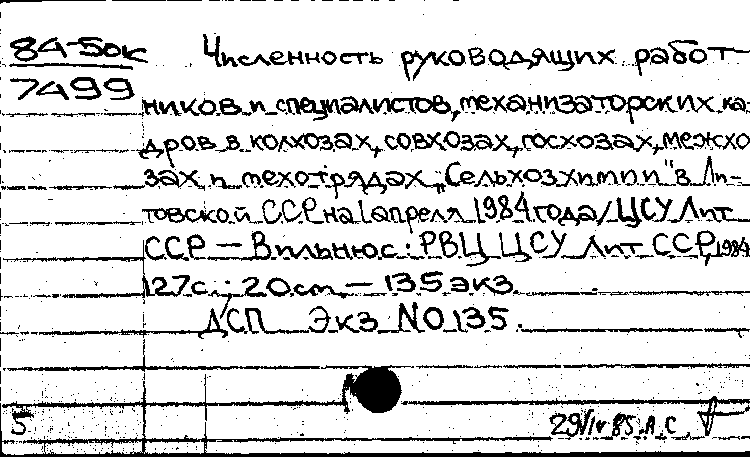 84-5ок Численность руководящих работ-
7499
ников и специалистов, механизаторских ка-
дров в колхозах, совхозах, госхозах, межхо-
зах и мехотрядах „Сельхозхимии" в Ли-
товской ССР на 1 апреля 1984 года/ЦСУ Лит
ССР — Вильнюс: РВЦ ЦСУ Лит ССР, 1984
127с.; 20см — 135 экз
ДСП Экз NO 135.
5
29/IV 85. А. С.